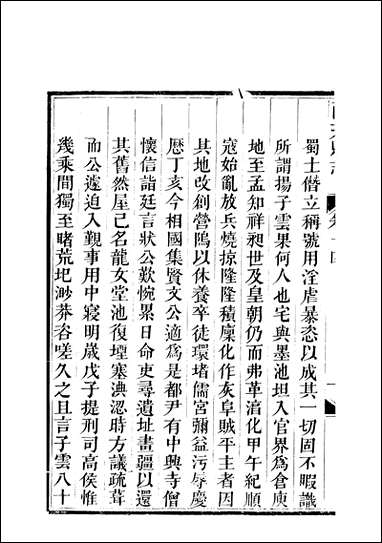 蜀土僭立稱號用淫虐暴恣以成其一切固不暇識
所謂揚子雲果何人也宅與墨池坦入官界爲倉庾
地至孟知祥昶世及皇朝仍而弗革淯化甲午紀順
寇始亂放兵燒掠隆隆積廩化作灰阜賊平主者因
其地改創營隖以休養卒徒環堵儒宮彌益污辱慶
歷丁亥今相國集賢文公適爲是都尹有中興寺僧
懷信詣廷言狀公歎惋累日命吏尋遺址畫疆以還
其舊然屋已名龍女堂池復堙塞淟涊時方議疏葺
而公遽迫入覲事用中寢明歲戊子提刑司高侯惟
幾乘間獨至睹荒圯渺莽咨嗟久之且言子雲八十